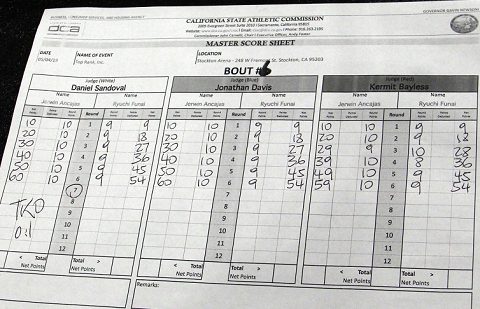 BUSINESS, CONSUMER SERVICES, AND HOUSING AGENCY GOVERNOR GAVIN NEWSOM
dca
CALIFORNIA STATE ATHLETIC COMMISSION
2005 Evergreen Street Suite 2010 | Sacramento, California 95815
Commissioner John Carvelli, Chair | Executive Officer, Andy Foster
MASTER SCORE SHEET
DATE NAME OF EVENT LOCATION
Top Rank, Inc. Stockton Arena - 248 W Fremont St. Stockton, CA 95203
BOUT #
Judge (White) Judge (Blue) Judge (Red)
Daniel Sandoval Jonathan Davis Kermit Bayless
Jerwin Ancajas Ryuchi Funai Jerwin Ancajas Ryuchi Funai Jerwin Ancajas Ryuchi Funai
Round Round Round
10 10 1 9 9 10 10 1 9 9 10 10 1 9 9
20 10 2 9 18 20 10 2 9 18 20 10 2 9 18
30 10 3 9 27 30 10 3 9 27 29 9 3 10 28
40 10 4 9 36 40 10 4 9 36 39 10 4 8 36
50 10 5 9 45 50 10 5 9 45 49 10 5 9 45
60 10 6 9 54 60 10 6 9 54 59 10 6 9 54
7 7 7
8 8 8
TKO 9 9 9
10 10 10
0:1 11 11 11
12 12 12
< Total > < Total > < Total >
Net Points Net Points Net Points Net Points Net Points Net Points
Remarks: